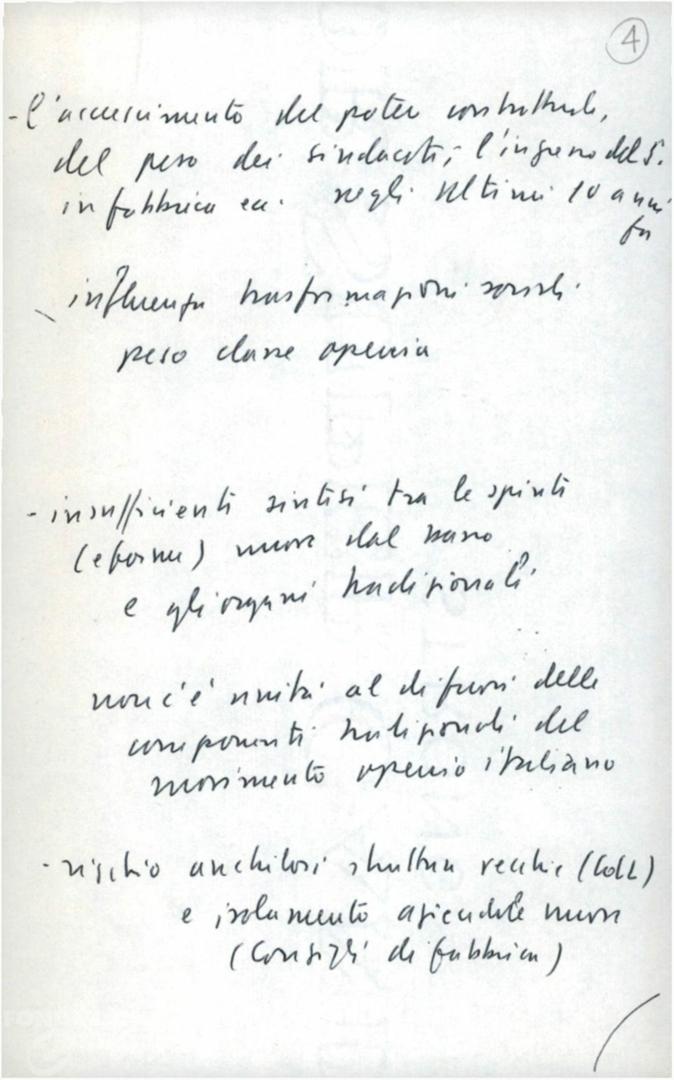 4
- l'accrescimento del potere contrattuale,
del peso dei sindacati, l'ingresso del S.
in fabbrica ecc. negli ultimi 10 anni
influenza trasformazioni sociali
peso classe operaia
- insufficienti sintesi tra le spinte
(e forme) nuove dal basso
e gli organi tradizionali
non c'è unità al di fuori delle
componenti tradizionali del
movimento operaio italiano
- rischio anchilosi struttura vecchie (CdL)
e isolamento aziendale nuove
(Consigli di fabbrica)